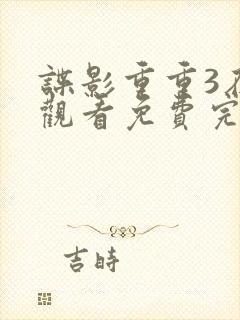 諜影重重3
觀看免費完
吉時